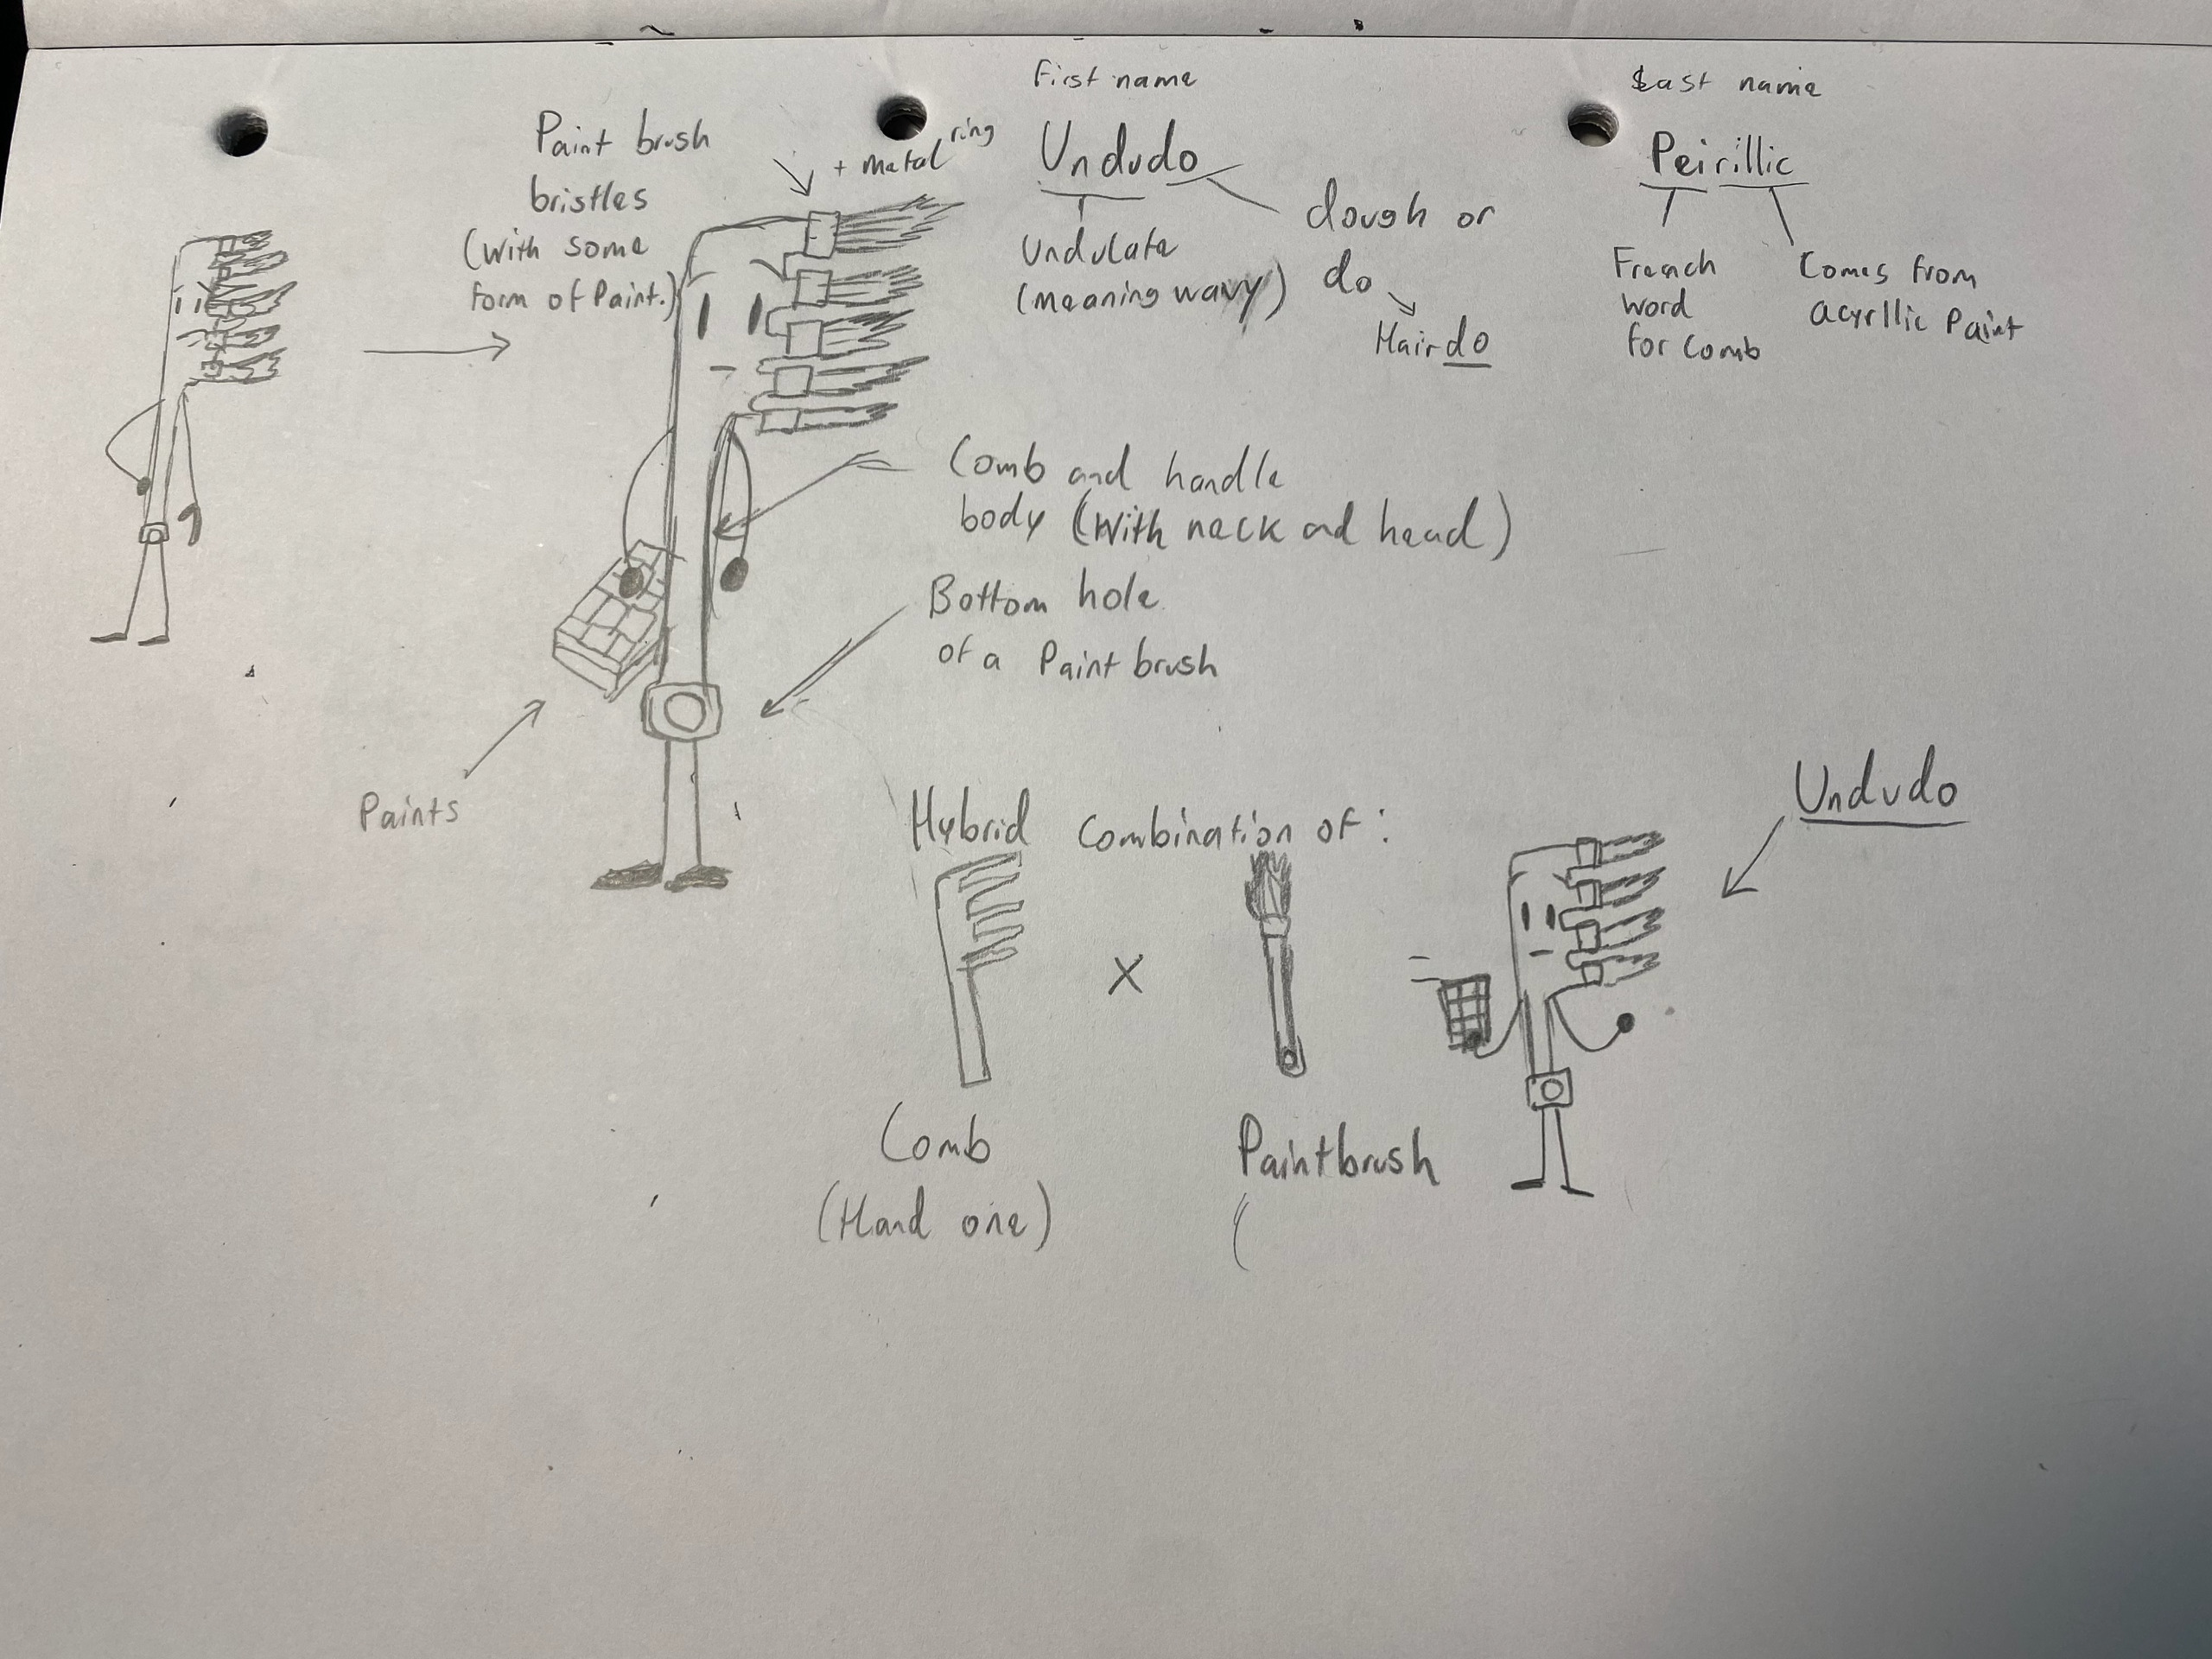 First name
Undudo
Undulate
(meaning wavy)
dough or
do
Hairdo
Last name
Peirillic
French
word
for comb
Comes from
acyrllic Paint
Paint brush
bristles
(with some
form of Paint.)
+ metal ring
Comb and handle
body (With neck and head)
Bottom hole
of a Paint brush
Paints
Hybrid Combination of:
X
=
Comb
(Hand one)
Paintbrush
(
Undudo